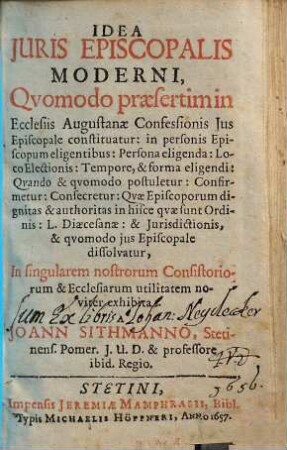 IDEA
JURIS EPISCOPALIS
MODERNI,
Qvomodo præsertim in
Ecclesiis Augustanæ Confessionis Jus
Episcopale constituatur: in personis Epi-
scopum eligentibus: Persona eligenda: Lo-
co Electionis: Tempore, & forma eligendi:
Qvando & qvomodo postuletur: Confir-
metur: Consecretur: Qvæ Episcoporum di-
gnitas & authoritas in hisce qvæ sunt Ordi-
nis: L. Diæcesanæ: & Jurisdictionis,
& qvomodo jus Episcopale
dissolvatur,
In singularem nostrorum Consistorio-
rum & Ecclesiarum utilitatem no-
viter exhibita
Sum Ex libris Johan: Neydecker
JOANN SITHMANNO, Steti-
nens. Pomer. J. U. D. & professore
ibid. Regio.
1656.
STETINI,
Impensis JEREMIÆ MAMPHRASII, Bibl.
Typis MICHAELIS HÖPFNERI, ANNO 1657.